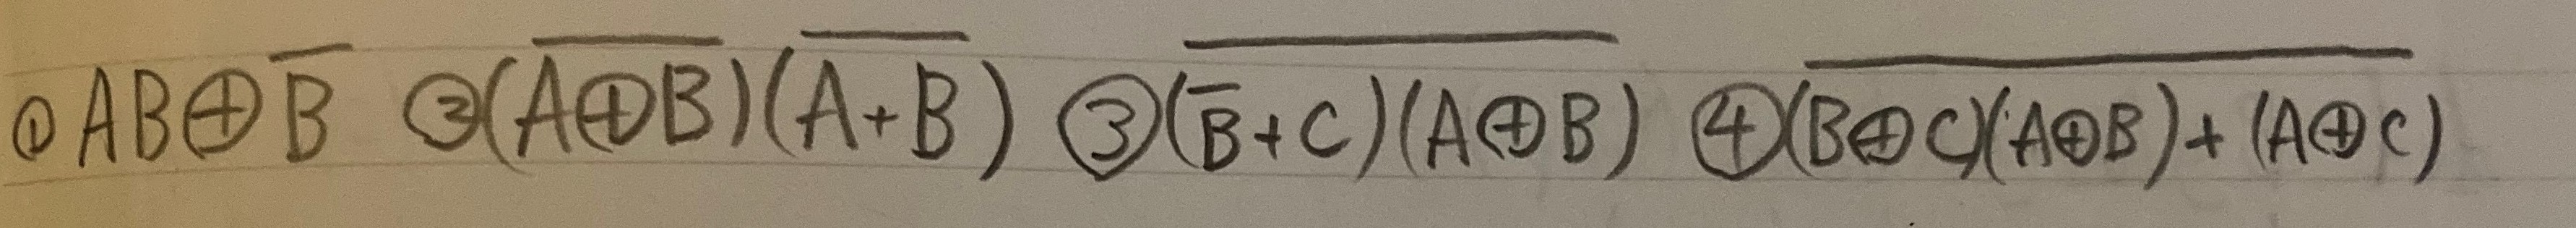 ① AB⊕B̅ ②(A̅⊕̅B̅)(A̅+̅B̅) ③(̅B̅̅+̅C̅)̅(̅A̅⊕̅B̅) ④(̅B̅⊕̅C̅)̅(̅A̅⊕̅B̅)̅+̅(̅A̅⊕̅C̅)